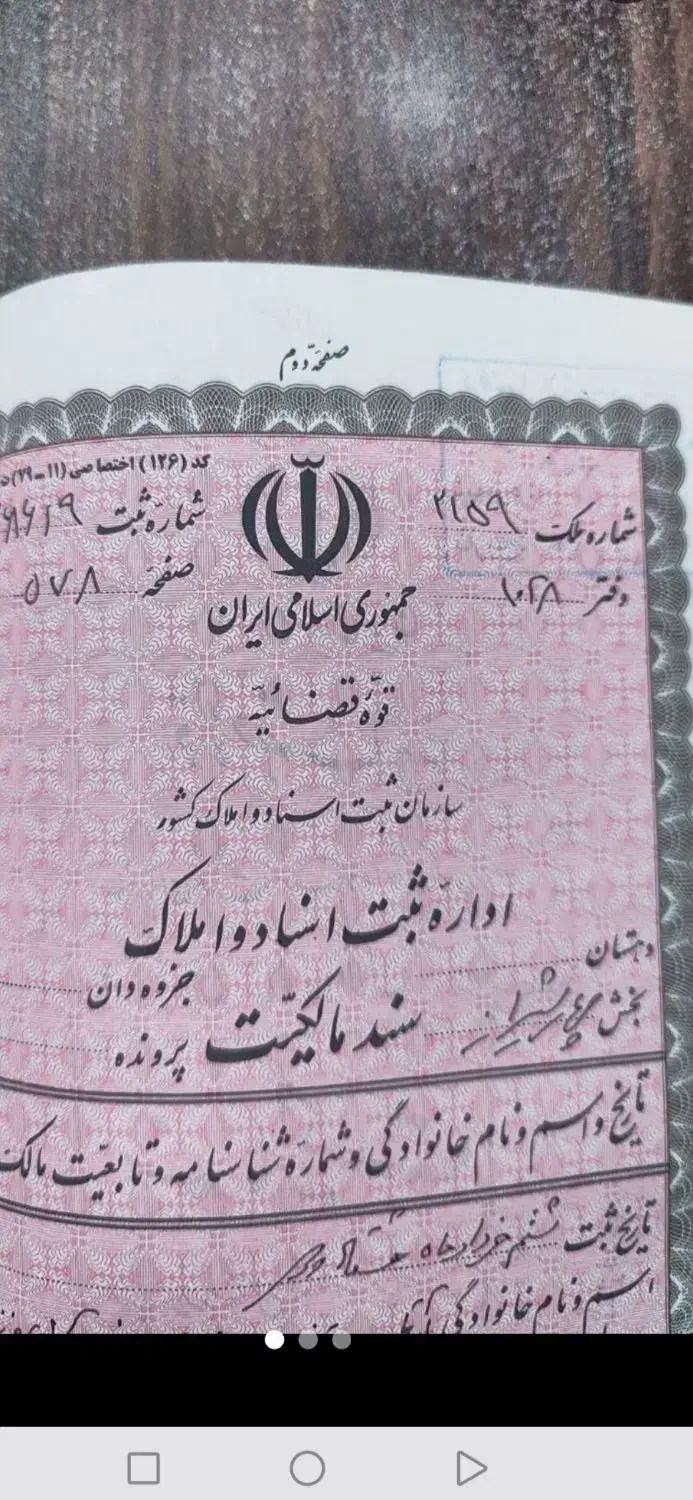 صفحهٔ دوم
کد (۱۲۶) اختصاصی (۱۱ - ۲۹)
شماره ملک ۲۱۵۹
شمارهٔ ثبت
دفتر ۱۰۲۸
صفحهٔ ۵۷۸
جمهوری اسلامی ایران
قوّهٔ قضائیّه
سازمان ثبت اسناد و املاک کشور
ادارهٔ ثبت اسناد و املاک
دهستان
جزوه دان
بخش شیراز
سند مالکیّت
پرونده
تاریخ و اسم و نام خانوادگی و شمارهٔ شناسنامه و تابعیّت مالک
تاریخ ثبت ششم خرداد ماه
اسم و نام خانوادگی